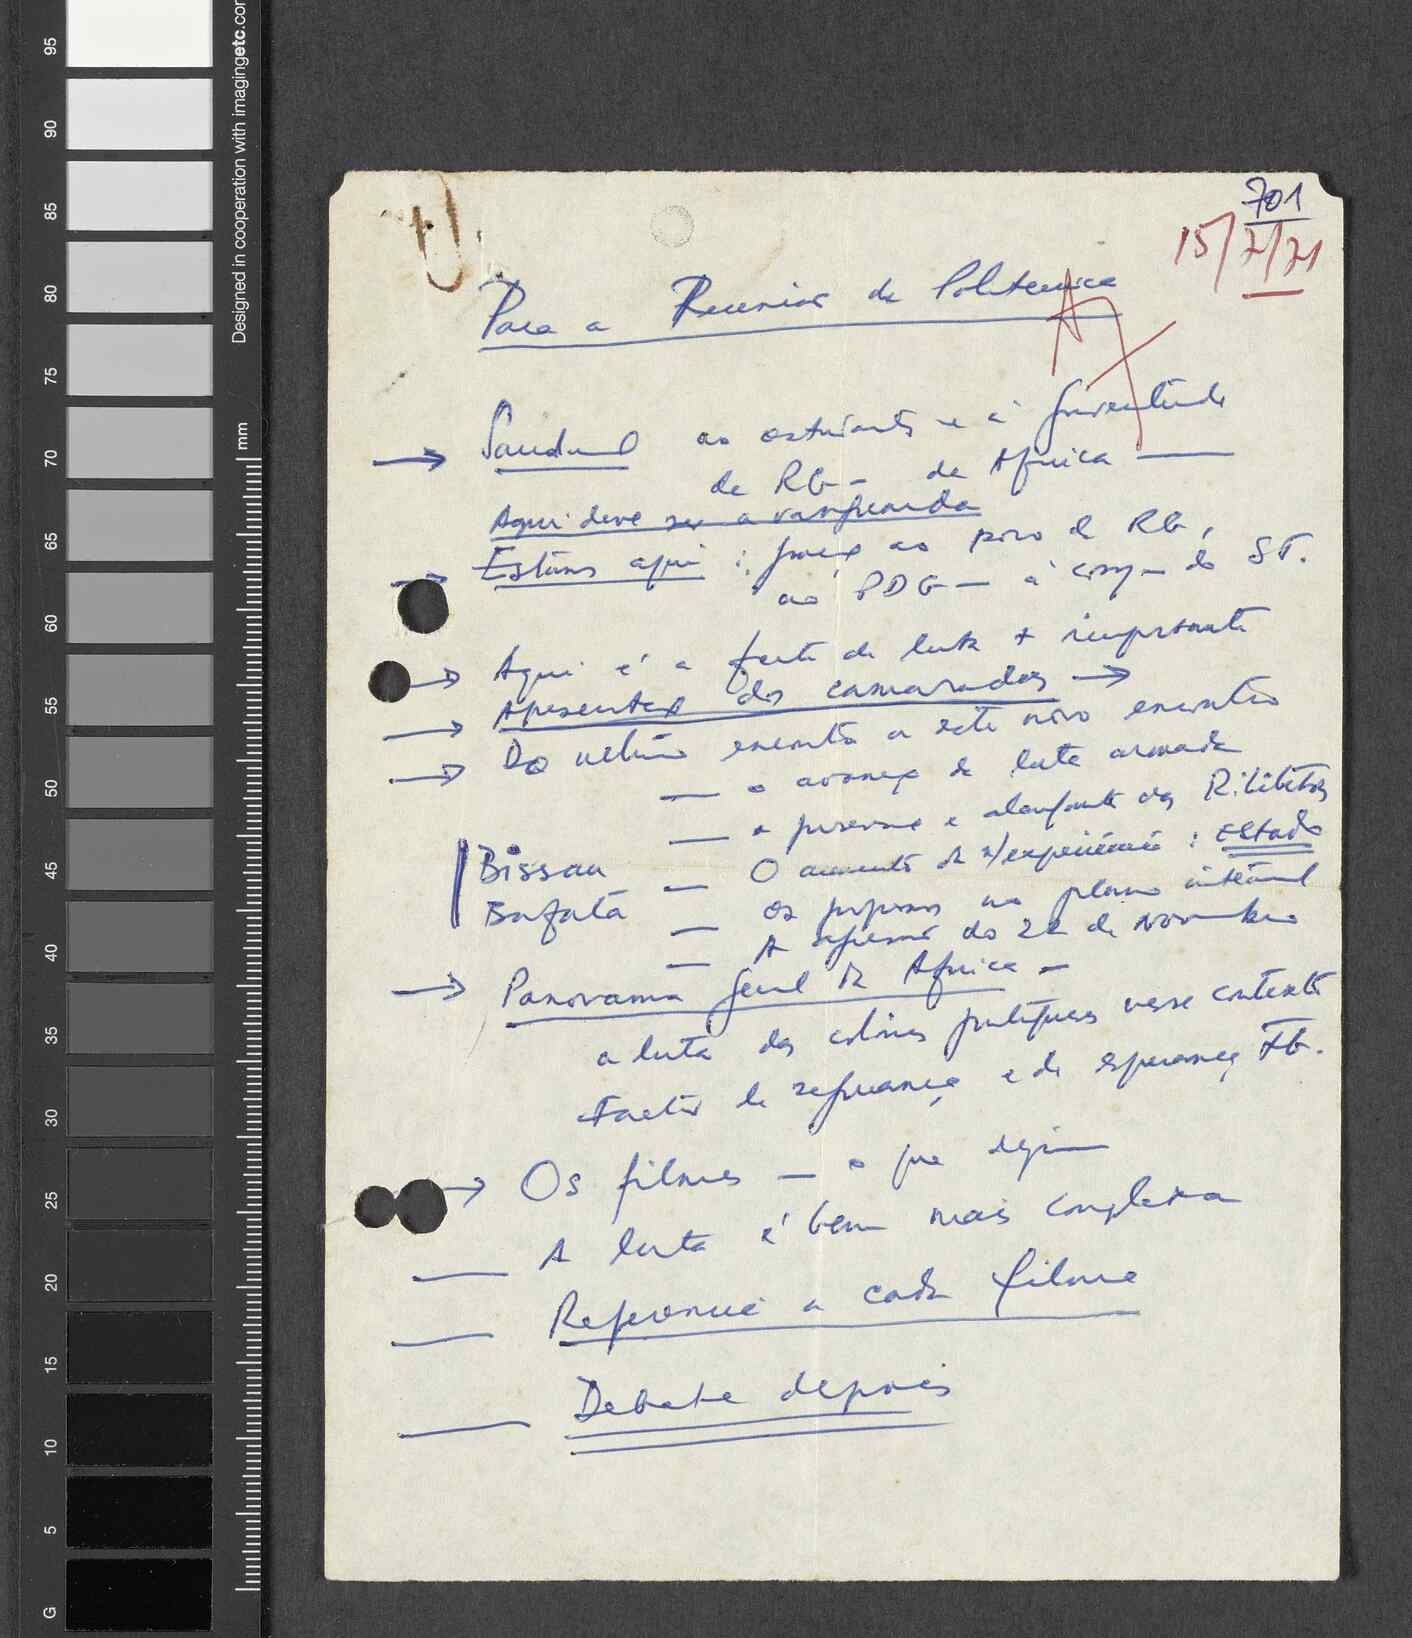 95
90
85
80
75
70
65
60
55
50
45
40
35
30
25
20
15
10
5
G
Designed in cooperation with imagingetc.com
mm
701
15/7/71
Para a Reunião da Politecnica
→ Saudação aos estudantes e à Juventude
de RG – de Africa —
Aqui deve ser a vanguarda
→ Estamos aqui : graças ao povo de RG,
ao PDG – à do ST.
→ Aqui é a frente de luta + importante
→ Apresentação dos camaradas →
→ Do ultimo encontro a este novo encontro
— o avanço da luta armada
— o progresso e alargamento das R. libertadas
Bissau — O aumento da n/experiência : Estado
Bafatá — os progressos no plano internacional
— A agressão do 22 de Novembro
→ Panorama geral da Africa –
a luta das colonias portuguesas nesse contexto
Factor de segurança e de esperança
→ Os filmes — o que
— A luta é bem mais complexa
— Referencia a cada filme
— Debate depois